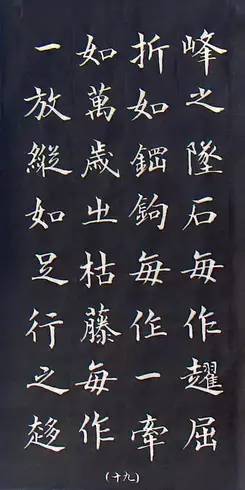 峰之墜石每作趯屈
折如鋼鉤每作一牽
如萬歲㞢枯藤每作
一放縱如足行之趍
(十九)